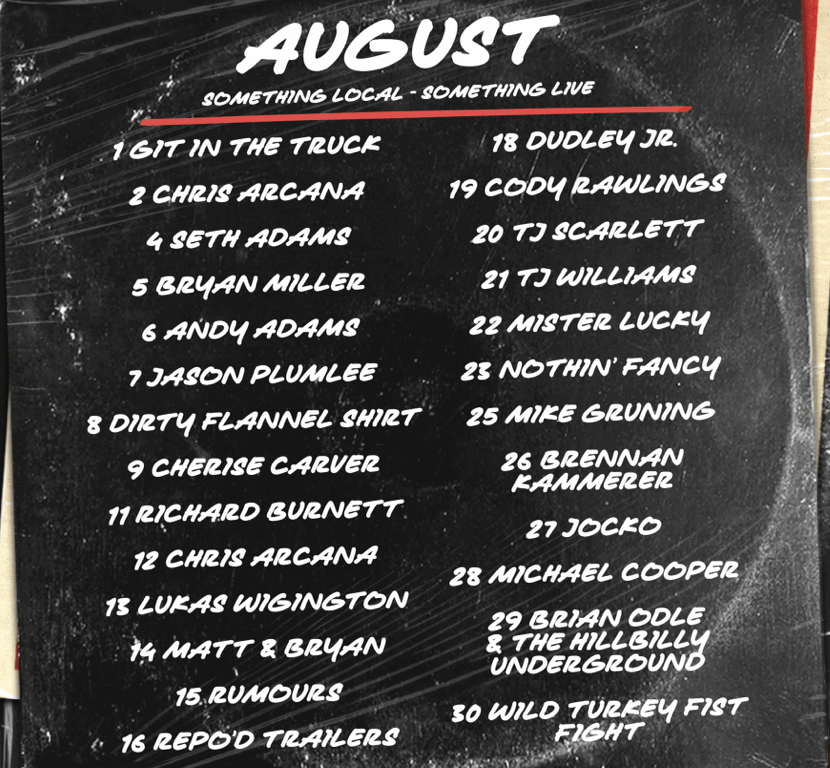 AUGUST
SOMETHING LOCAL - SOMETHING LIVE
1 GIT IN THE TRUCK
2 CHRIS ARCANA
4 SETH ADAMS
5 BRYAN MILLER
6 ANDY ADAMS
7 JASON PLUMLEE
8 DIRTY FLANNEL SHIRT
9 CHERISE CARVER
11 RICHARD BURNETT
12 CHRIS ARCANA
13 LUKAS WIGINGTON
14 MATT & BRYAN
15 RUMOURS
16 REPO'D TRAILERS
18 DUDLEY JR.
19 CODY RAWLINGS
20 TJ SCARLETT
21 TJ WILLIAMS
22 MISTER LUCKY
23 NOTHIN' FANCY
25 MIKE GRUNING
26 BRENNAN
KAMMERER
27 JOCKO
28 MICHAEL COOPER
29 BRIAN ODLE
& THE HILLBILLY
UNDERGROUND
30 WILD TURKEY FIST
FIGHT